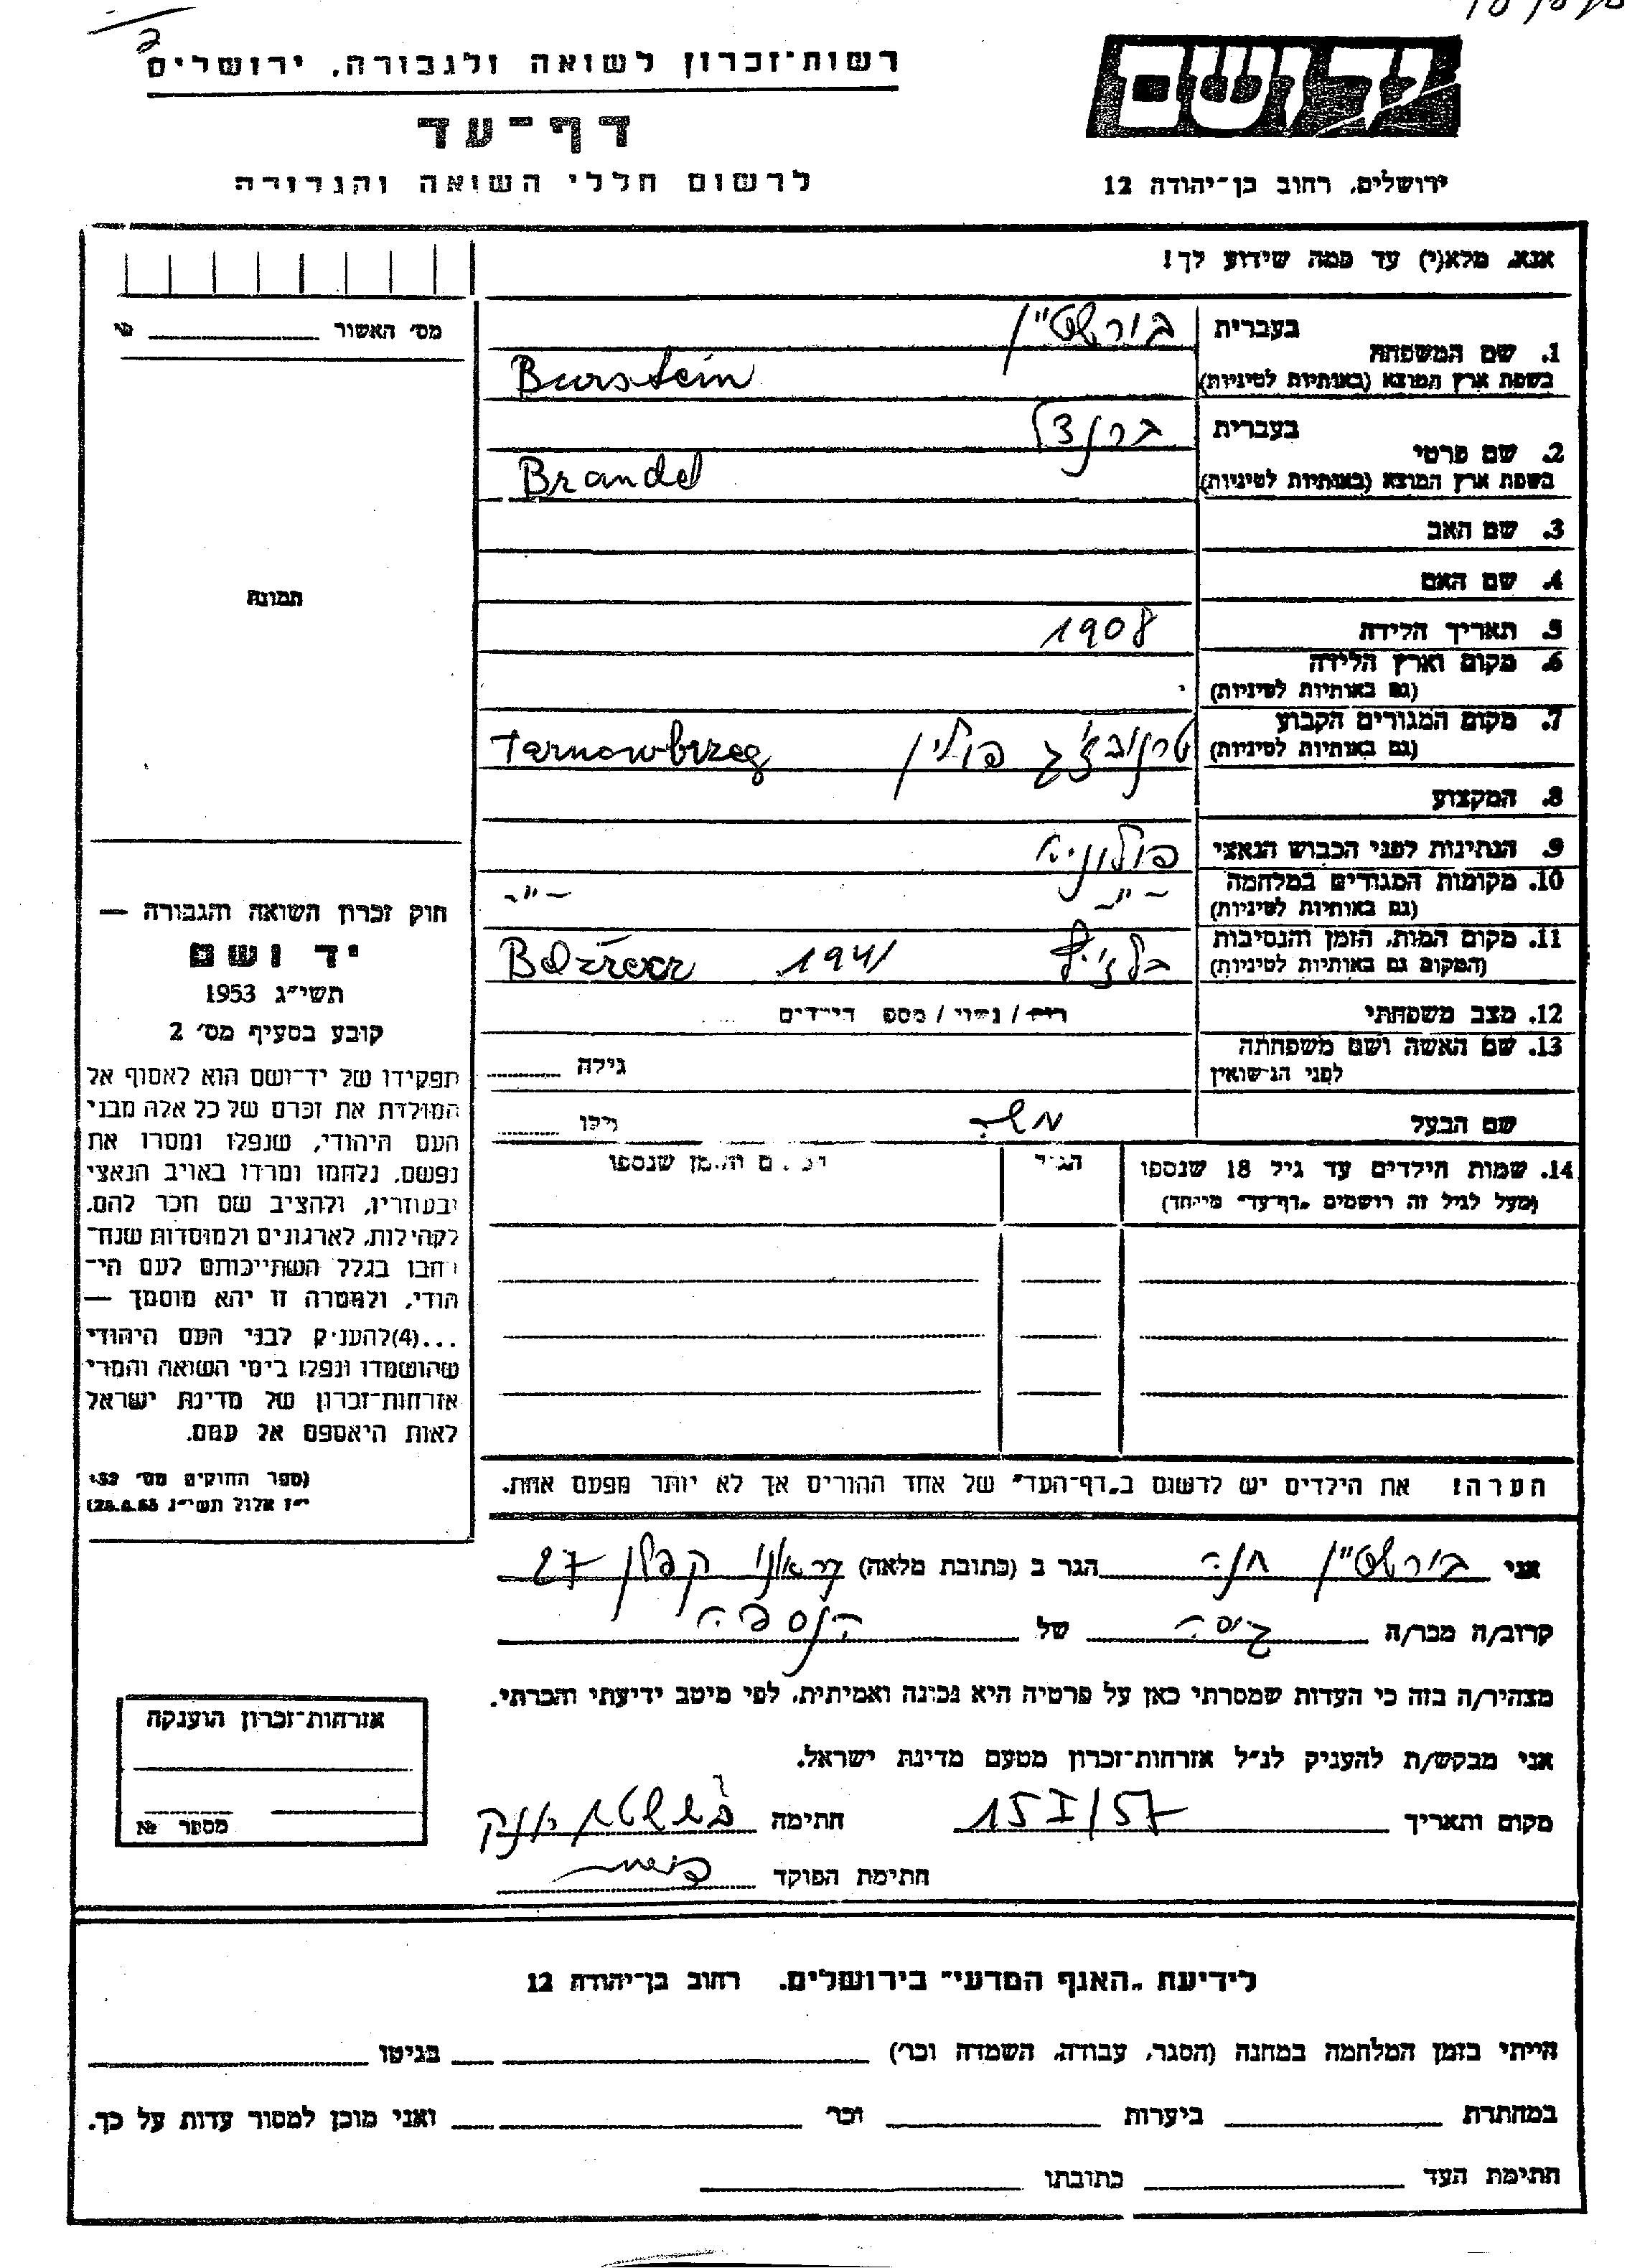 רשות־זכרון לשואה ולגבורה, ירושלים
דף־עד
לרשום חללי השואה והגבורה
יד ושם
ירושלים, רחוב בן־יהודה 12
אנא, מלא(י) עד כמה שידוע לך!
מס׳ האשור
בעברית
בורשטיין
1. שם המשפחה
בשפת ארץ המוצא (באותיות לטיניות)
Burstein
בעברית
ברנדל
2. שם פרטי
בשפת ארץ המוצא (באותיות לטיניות)
Brandel
3. שם האב
4. שם האם
תמונה
5. תאריך הלידה 1908
6. מקום וארץ הלידה
(גם באותיות לטיניות)
7. מקום המגורים הקבוע
(גם באותיות לטיניות)
פולין Tarnowbrzeg
8. המקצוע
9. הנתינות לפני הכבוש הנאצי פולניה
10. מקומות המגורים במלחמה
(גם באותיות לטיניות)
–״– –״–
11. מקום המות, הזמן והנסיבות
(המקום גם באותיות לטיניות)
1941
12. מצב משפחתי
רוק / נשוי / מספר הילדים
13. שם האשה ושם משפחתה
לפני הנישואין
גילה
שם הבעל משה גילו
14. שמות הילדים עד גיל 18 שנספו
(מעל לגיל זה רושמים „דף־עד״ מיוחד)
הגיל
המקום והזמן שנספו
הערה! את הילדים יש לרשום ב„דף־העד״ של אחד ההורים אך לא יותר מפעם אחת.
חוק זכרון השואה והגבורה —
יד ושם
תשי״ג 1953
קובע בסעיף מס׳ 2
תפקידו של יד־ושם הוא לאסוף אל
המולדת את זכרם של כל אלה מבני
העם היהודי, שנפלו ומסרו את
נפשם, נלחמו ומרדו באויב הנאצי
ובעוזריו, ולהציב שם וזכר להם,
לקהילות, לארגונים ולמוסדות שנח־
רבו בגלל השתייכותם לעם הי־
הודי, ולמטרה זו יהא מוסמך —
...(4)להעניק לבני העם היהודי
שהושמדו ונפלו בימי השואה והמרי
אזרחות־זכרון של מדינת ישראל
לאות היאספם אל עמם.
(ספר החוקים מס׳ 132,
י״ז אלול תשי״ג 28.8.53)
אני בורשטיין חנה הגר ב (כתובת מלאה) קפלן 27
קרוב/ה מכר/ה גיסה של הנספה
מצהיר/ה בזה כי העדות שמסרתי כאן על פרטיה היא נכונה ואמיתית, לפי מיטב ידיעתי והכרתי.
אני מבקש/ת להעניק לנ״ל אזרחות־זכרון מטעם מדינת ישראל.
מקום ותאריך 15 I/57 חתימה
חתימת הפוקד
אזרחות־זכרון הוענקה
מספר №
לידיעת „האגף המדעי״ בירושלים, רחוב בן־יהודה 12
הייתי בזמן המלחמה במחנה (הסגר, עבודה, השמדה וכר׳) בגיטו
במחתרת ביערות וכר׳ ואני מוכן למסור עדות על כך.
חתימת העד כתובתו